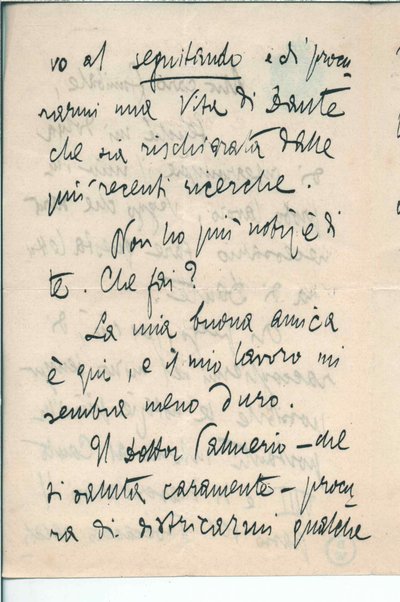 vo al seguitando e di procu
rarmi una Vita di Dante
che sia rischiarata dalle
più recenti ricerche.
Non ho più notizie di
te. Che fai?
La mia buona amica
è qui, e il mio lavoro mi
sembra meno duro.
Il Dottor Palmerio – che
ti saluta caramente – procu
ra di districarmi qualche